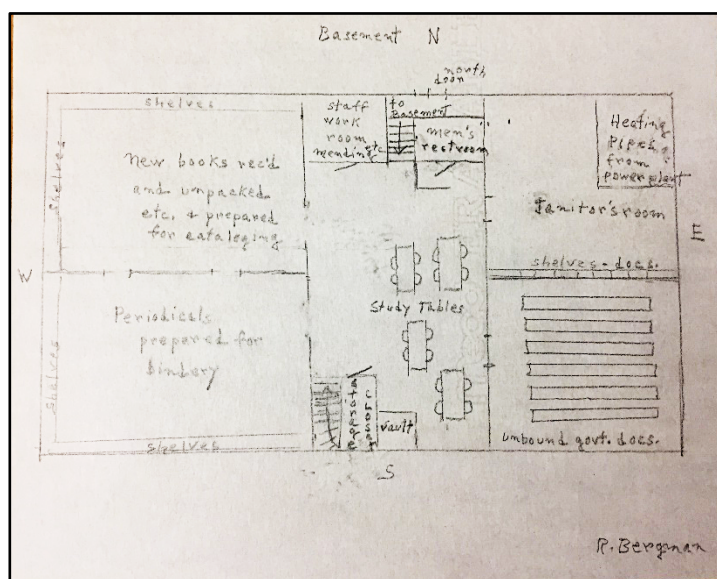 Basement N
north
door
shelves
staff
work
room
mending etc
to
Basement
men's
restroom
Heating
pipes
from
powerplant
shelves
New books rec'd
and unpacked
etc. & prepared
for cataloging
Janitor's room
W
E
shelves-docs.
Periodicals
prepared for
bindery
Study Tables
shelves
closet
vault
shelves
unbound govt. docs.
S
R. Bergman